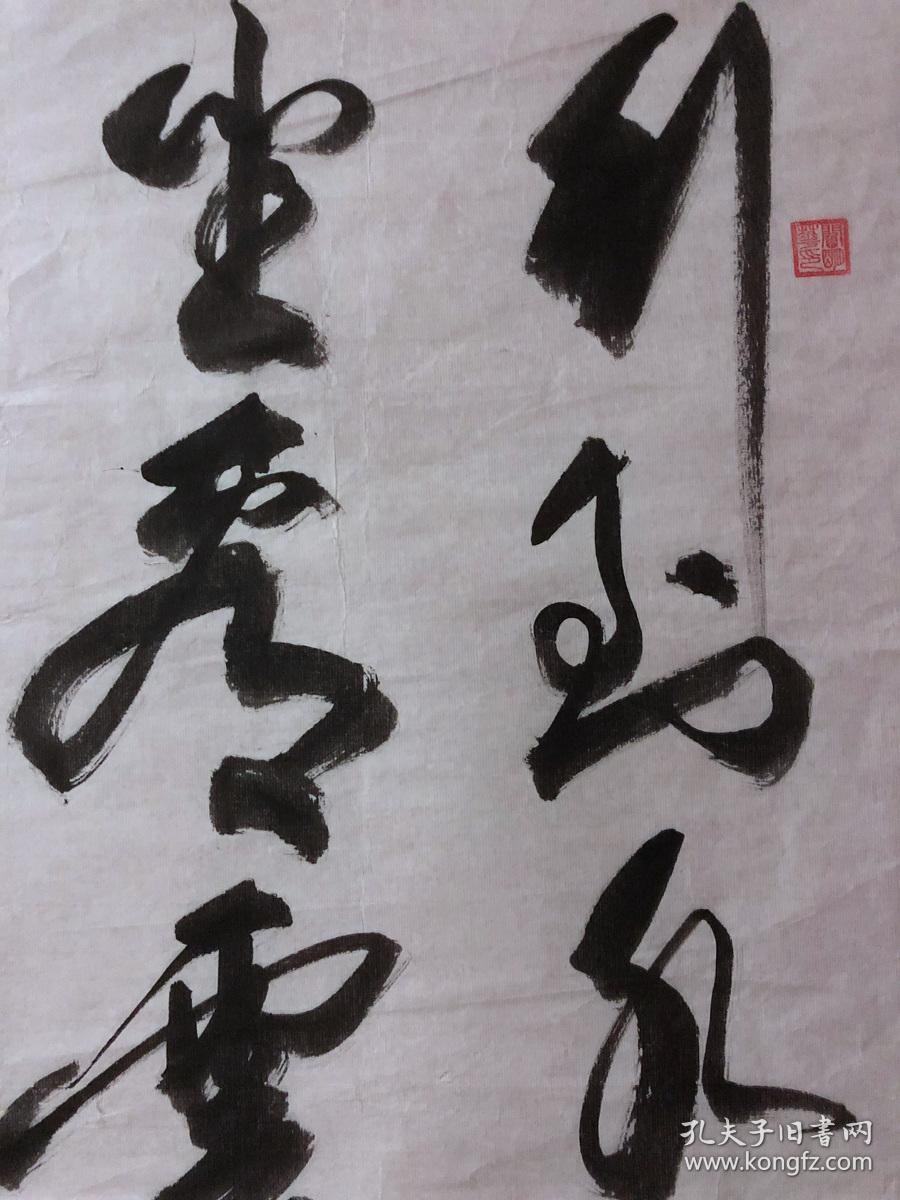 行到水
坐看雲
孔夫子旧書网
www.kongfz.com